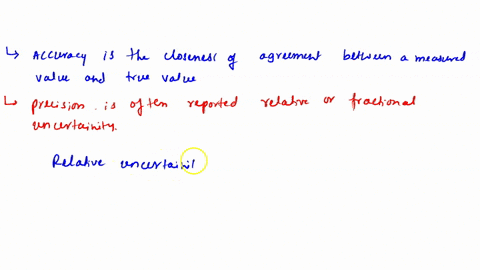 ↳ Accuracy is the closeness of agreement between a measured
value and true value
↳ precision . is often reported relative or fractional
uncertainity.
Relative uncertainit